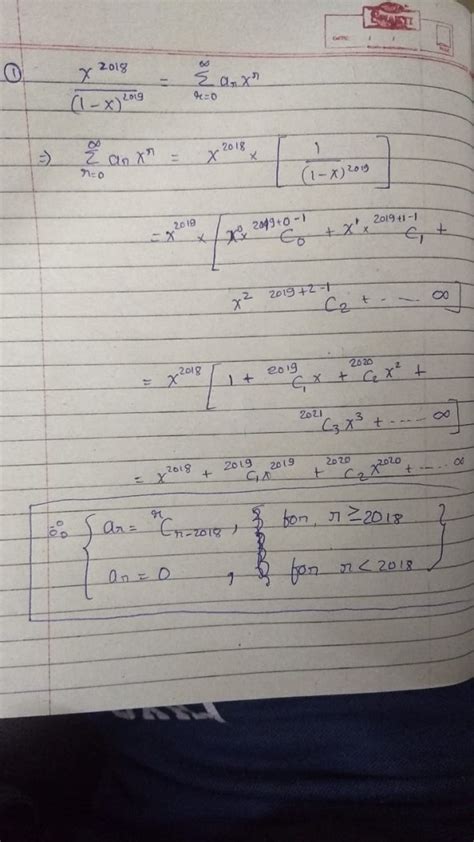 BHAKTI
DATE: / /
① x^2018 / (1-x)^2019 = ∑_{r=0}^{∞} a_r x^r
⇒ ∑_{r=0}^{∞} a_r x^r = x^2018 × [ 1 / (1-x)^2019 ]
= x^2019 × [ x^0 × ^{2019+0-1}C_0 + x^1 × ^{2019+1-1}C_1 +
x^2 ^{2019+2-1}C_2 + ---- ∞ ]
= x^2018 [ 1 + ^{2019}C_1 x + ^{2020}C_2 x^2 +
^{2021}C_3 x^3 + ---- ∞ ]
= x^2018 + ^{2019}C_1 x^2019 + ^{2020}C_2 x^2020 + ---- ∞
∴ { a_r = ^rC_{r-2018} , for r ≥ 2018
a_r = 0 , for r < 2018 }